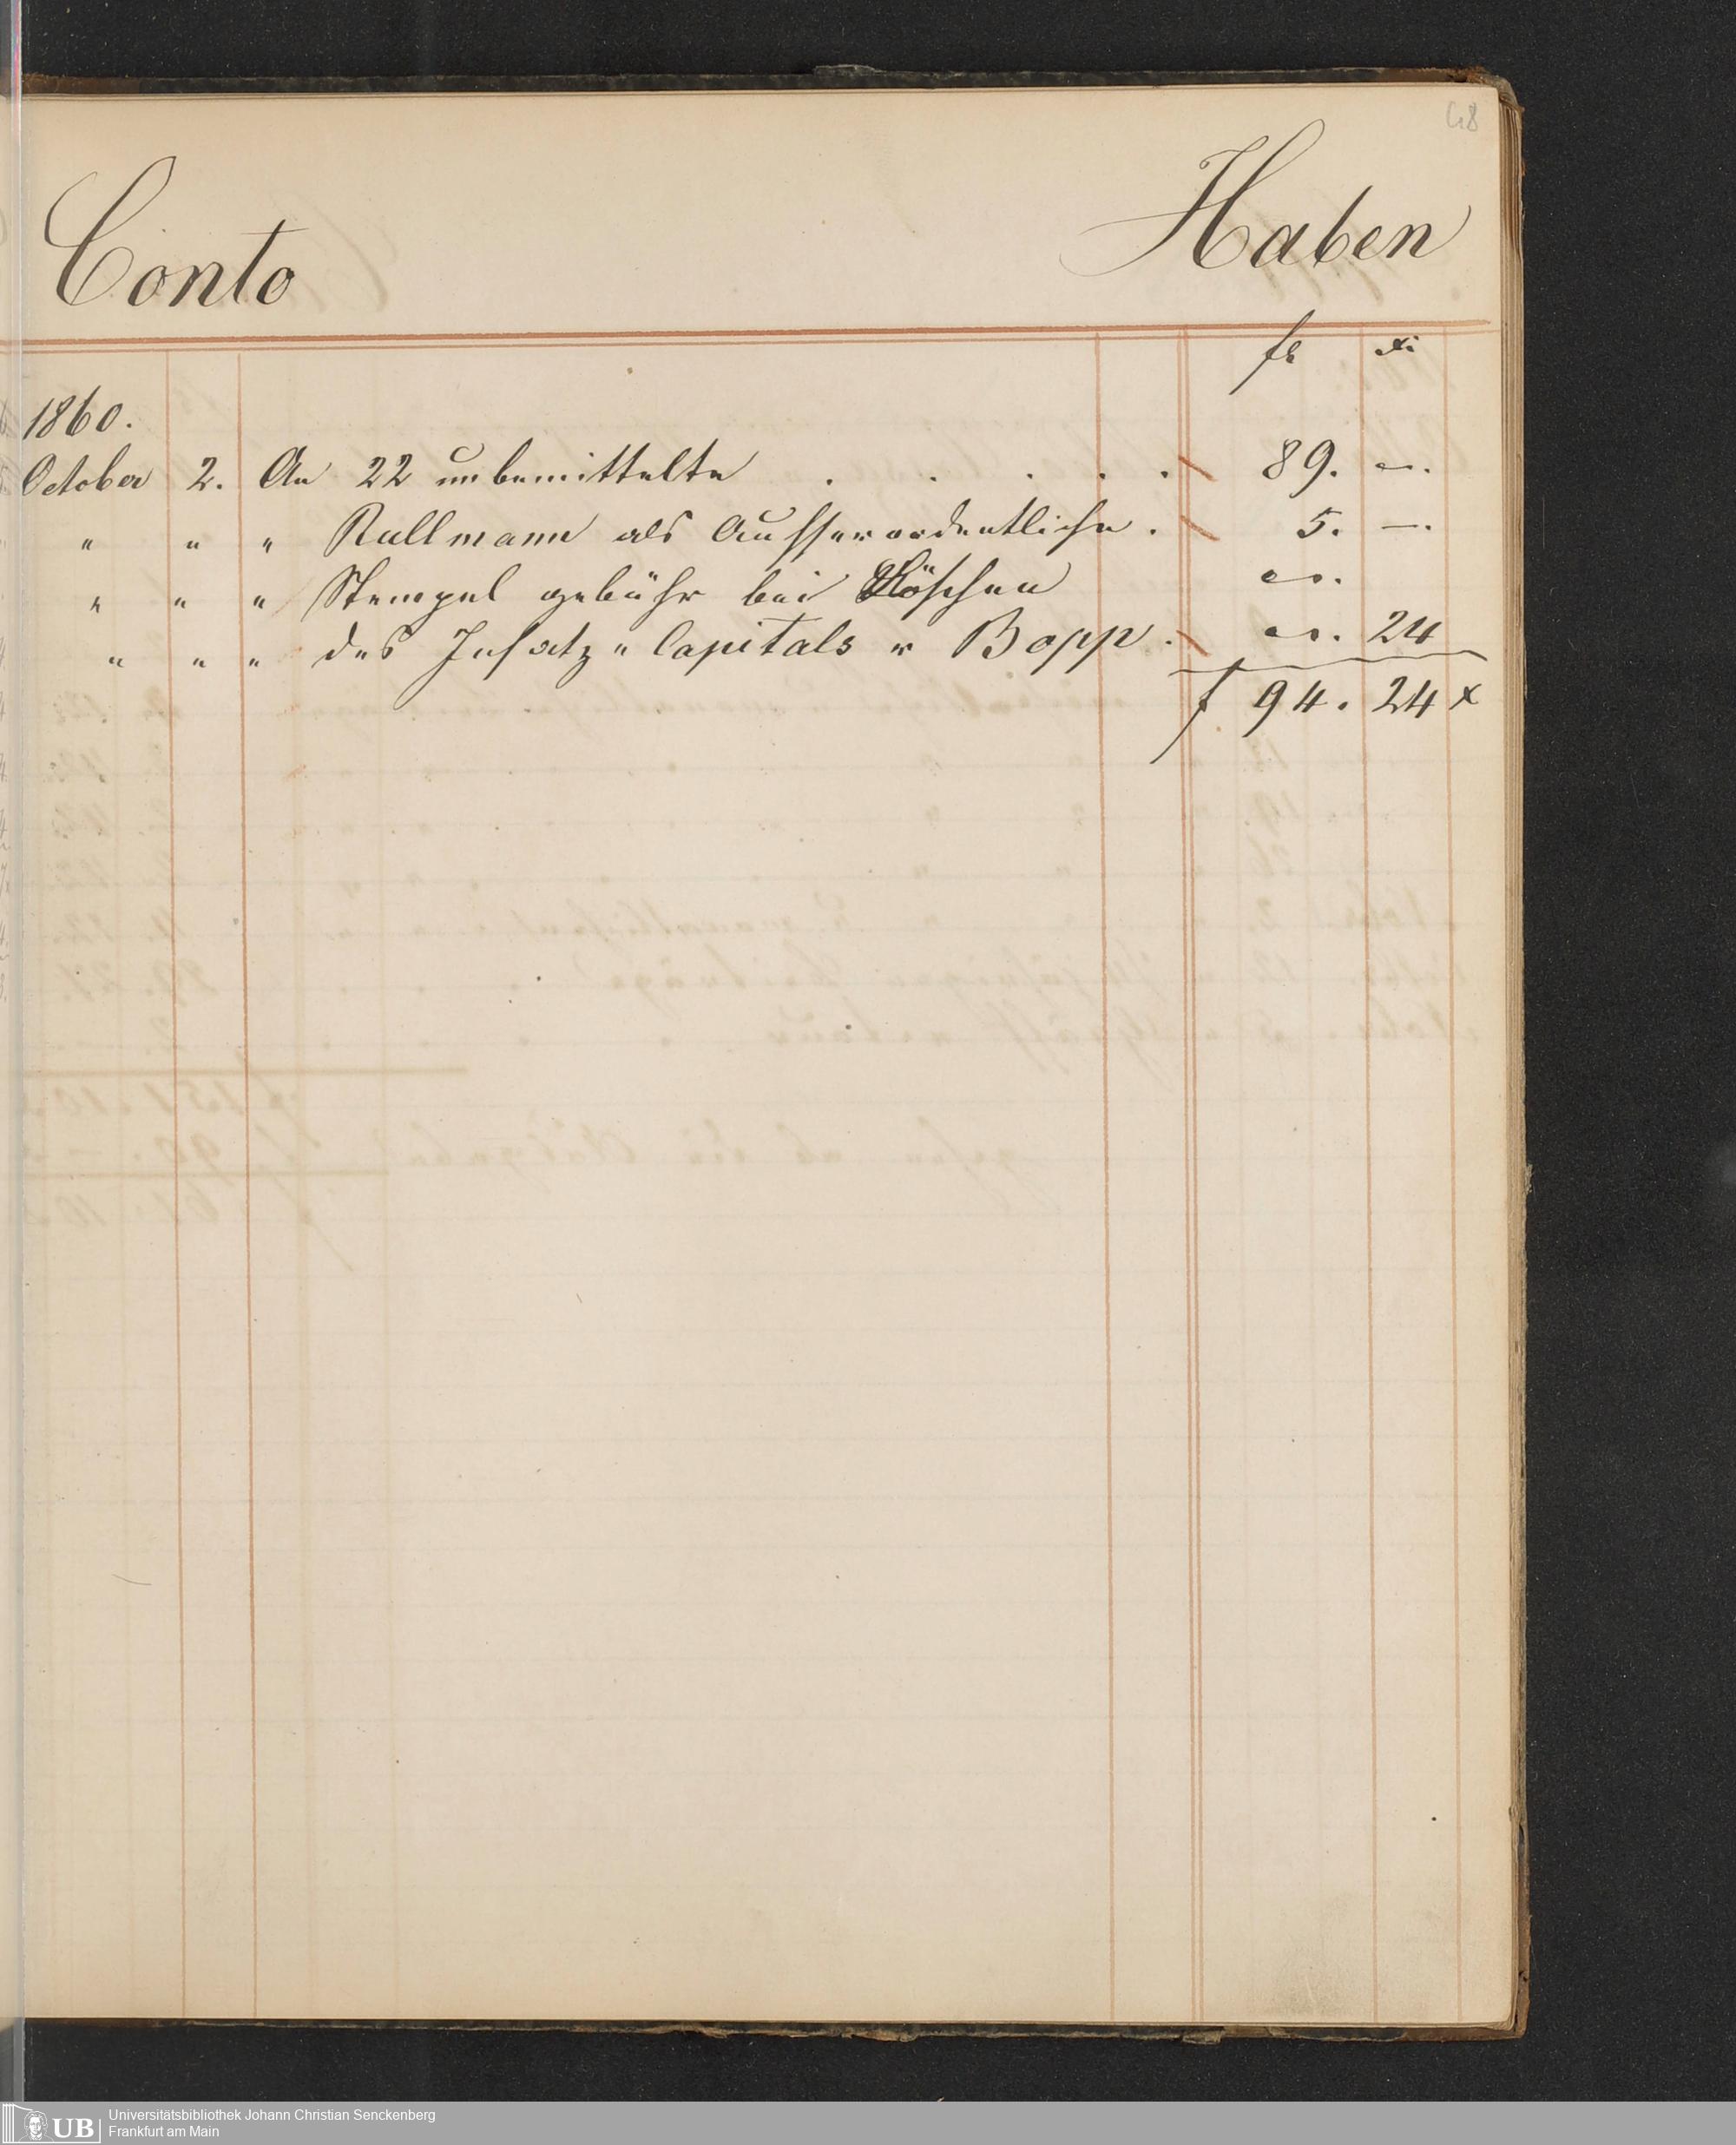 48
Conto Haben
fl xr
1860.
October 2. An 22 unbemittelte . . . . . 89. —.
" " " Rullmann als Ausserordentliche . 5. —.
" " " Stempel gebühr bei Löschen —.
" " " des Insatz " Capitals v Bopp . —. 24
f 94. 24 x
UB Universitätsbibliothek Johann Christian Senckenberg
Frankfurt am Main